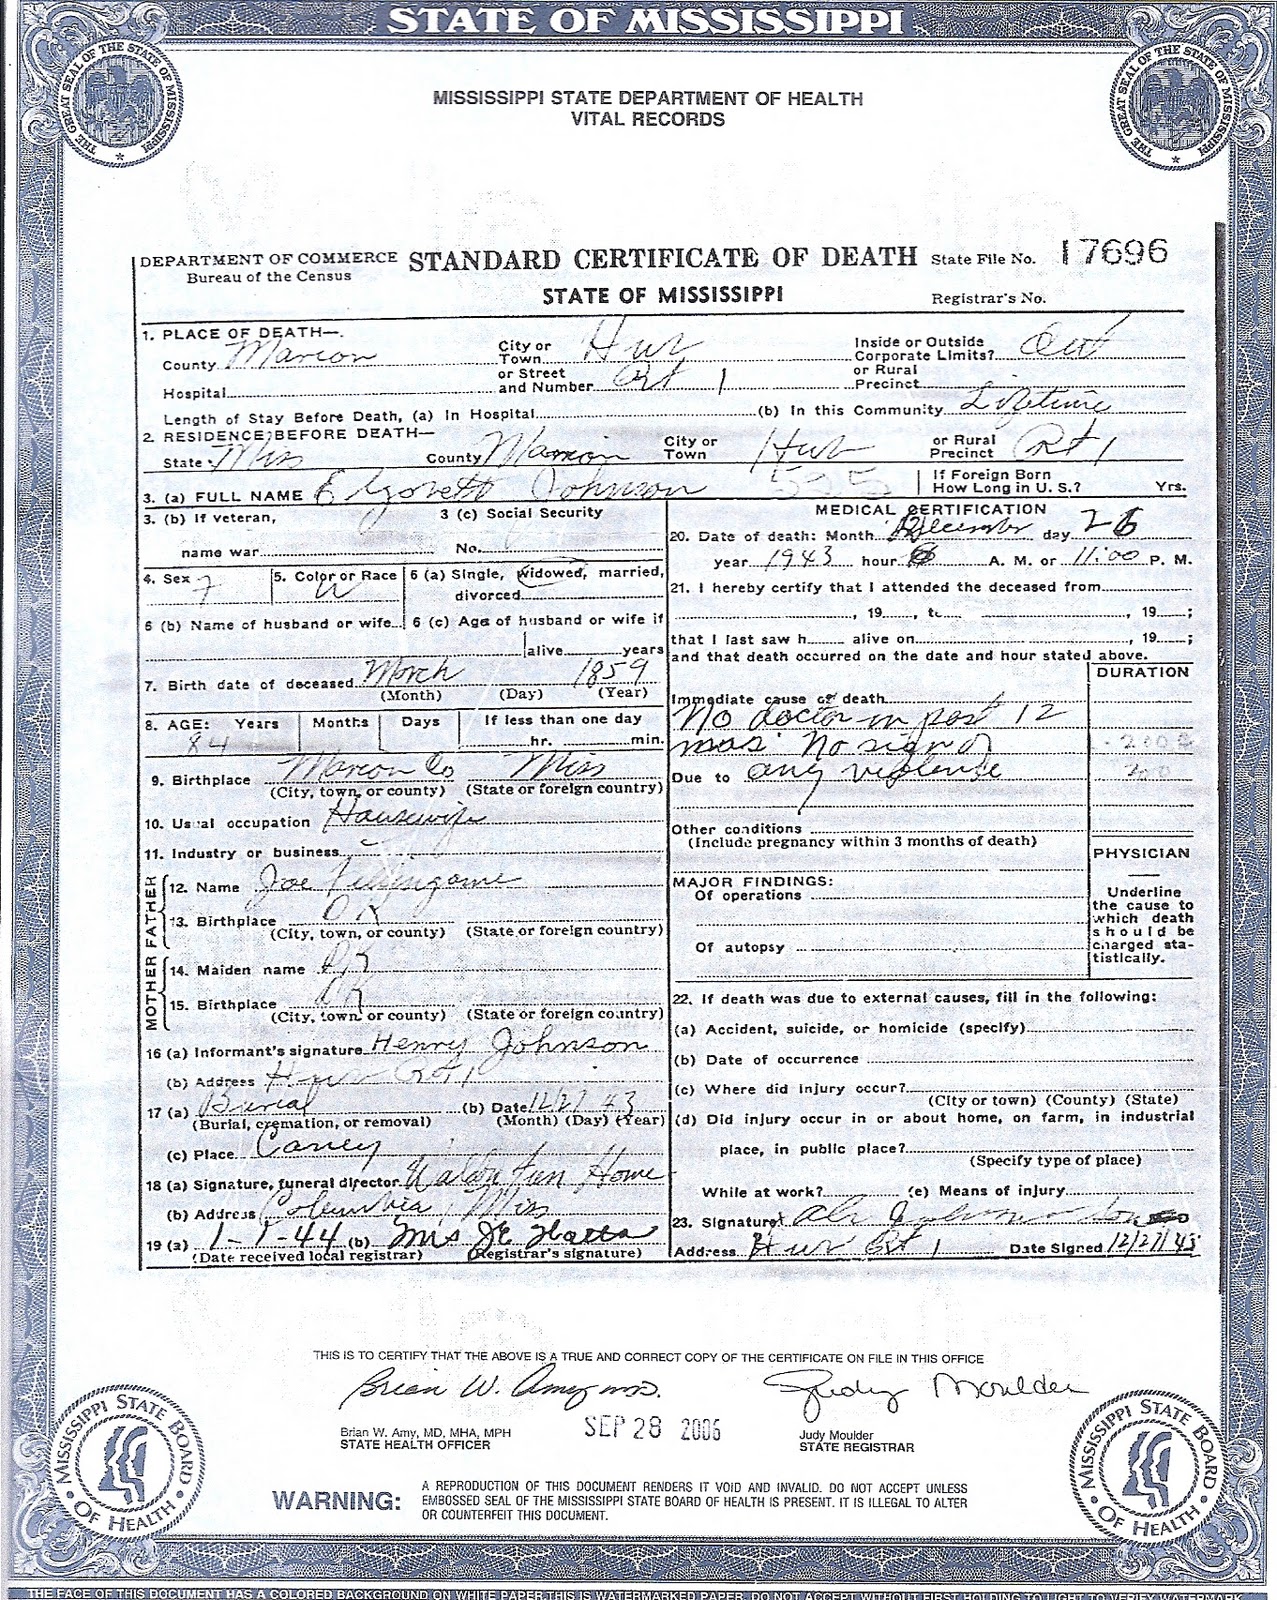 STATE OF MISSISSIPPI
THE GREAT SEAL OF THE STATE OF MISSISSIPPI
THE GREAT SEAL OF THE STATE OF MISSISSIPPI
MISSISSIPPI STATE DEPARTMENT OF HEALTH
VITAL RECORDS
DEPARTMENT OF COMMERCE STANDARD CERTIFICATE OF DEATH State File No. 17696
Bureau of the Census
STATE OF MISSISSIPPI Registrar's No.
1. PLACE OF DEATH—
County Marion City or Town Hub Inside or Outside Corporate Limits? Out
Hospital or Street and Number Rt 1 or Rural Precinct
Length of Stay Before Death, (a) In Hospital (b) In this Community Lifetime
2. RESIDENCE BEFORE DEATH—
State Miss County Marion City or Town Hub or Rural Precinct Rt 1
3. (a) FULL NAME Johnson 525 If Foreign Born How Long in U. S.? Yrs.
3. (b) If veteran, name war 3 (c) Social Security No.
4. Sex F 5. Color or Race W 6 (a) Single, widowed, married, divorced
6 (b) Name of husband or wife 6 (c) Age of husband or wife if alive years
7. Birth date of deceased March 1859
(Month) (Day) (Year)
8. AGE: Years Months Days If less than one day
84 hr. min.
9. Birthplace Marion Co Miss
(City, town, or county) (State or foreign country)
10. Usual occupation Housewife
11. Industry or business
FATHER
12. Name Joe Fillingame
13. Birthplace DK
(City, town, or county) (State or foreign country)
MOTHER
14. Maiden name DK
15. Birthplace DK
(City, town, or county) (State or foreign country)
16 (a) Informant's signature Henry Johnson
(b) Address Hub Rt 1
17 (a) Burial (b) Date 12/27 43
(Burial, cremation, or removal) (Month) (Day) (Year)
(c) Place Caney
18 (a) Signature, funeral director Fun Home
(b) Address Columbia, Miss
19 (a) 1-1-44 (b) Mrs
(Date received local registrar) (Registrar's signature)
MEDICAL CERTIFICATION
20. Date of death: Month December day 26
year 1943 hour A. M. or 11:00 P. M.
21. I hereby certify that I attended the deceased from
, 19 , to , 19 ;
that I last saw h alive on , 19 ;
and that death occurred on the date and hour stated above.
DURATION
Immediate cause of death
No doctor in past 12
mos No sign of
Due to any violence
Other conditions
(Include pregnancy within 3 months of death)
MAJOR FINDINGS:
Of operations
Of autopsy
PHYSICIAN
Underline
the cause to
which death
should be
charged sta-
tistically.
22. If death was due to external causes, fill in the following:
(a) Accident, suicide, or homicide (specify)
(b) Date of occurrence
(c) Where did injury occur?
(City or town) (County) (State)
(d) Did injury occur in or about home, on farm, in industrial
place, in public place?
(Specify type of place)
While at work? (e) Means of injury
23. Signature
Address Hub Rt 1 Date Signed 12/27/43
THIS IS TO CERTIFY THAT THE ABOVE IS A TRUE AND CORRECT COPY OF THE CERTIFICATE ON FILE IN THIS OFFICE
Brian W. Amy MD. Judy Moulder
Brian W. Amy, MD, MHA, MPH
STATE HEALTH OFFICER
SEP 28 2006
Judy Moulder
STATE REGISTRAR
MISSISSIPPI STATE BOARD OF HEALTH
MISSISSIPPI STATE BOARD OF HEALTH
WARNING:
A REPRODUCTION OF THIS DOCUMENT RENDERS IT VOID AND INVALID. DO NOT ACCEPT UNLESS
EMBOSSED SEAL OF THE MISSISSIPPI STATE BOARD OF HEALTH IS PRESENT. IT IS ILLEGAL TO ALTER
OR COUNTERFEIT THIS DOCUMENT.
THE FACE OF THIS DOCUMENT HAS A COLORED BACKGROUND ON WHITE PAPER THIS IS WATERMARKED PAPER. DO NOT ACCEPT WITHOUT FIRST HOLDING TO LIGHT TO VERIFY WATERMARK